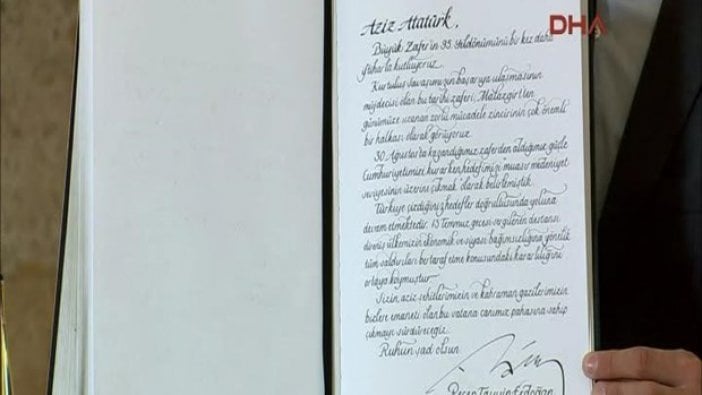 DHA
Aziz Atatürk,
Büyük Zafer'in 95. Yıldönümünü bir kez daha
iftiharla kutluyoruz.
Kurtuluş Savaşımızın başarıya ulaşmasının
müjdecisi olan bu tarihi zaferi, Malazgirt'ten
günümüze uzanan zorlu mücadele zincirinin çok önemli
bir halkası olarak görüyoruz.
30 Ağustos'ta kazandığımız zaferden aldığımız güçle
Cumhuriyetimizi kurarken, hedefimizi "muasır medeniyet
seviyesinin üzerine çıkmak" olarak belirlemiştik.
Türkiye çizdiğiniz hedefler doğrultusunda yoluna
devam etmektedir. 15 Temmuz gecesi sergilenen destansı
direniş ülkemizin ekonomik ve siyasi bağımsızlığına yönelik
tüm saldırıları bertaraf etme konusundaki kararlılığını
ortaya koymuştur.
Sizin, aziz şehitlerimizin ve kahraman gazilerimizin
bizlere emaneti olan bu vatana canımız pahasına sahip
çıkmayı sürdüreceğiz.
Ruhun şad olsun
Recep Tayyip Erdoğan